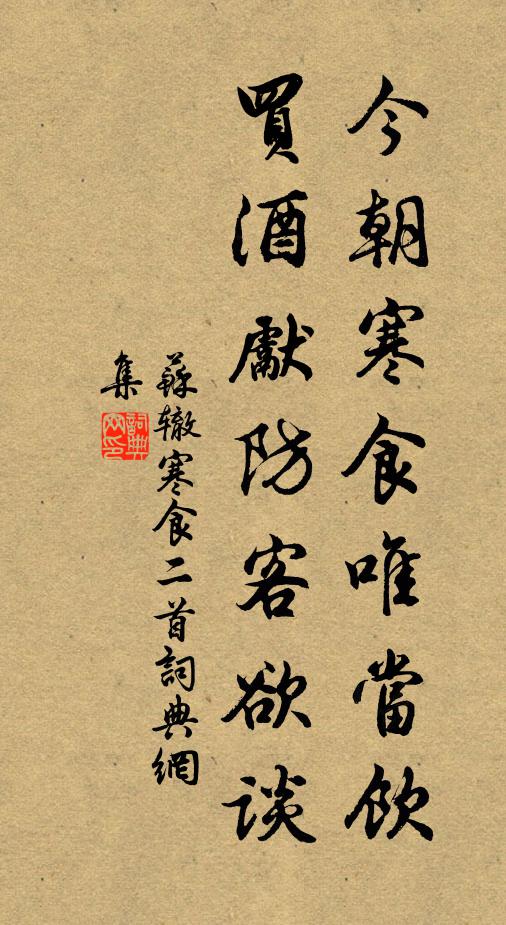 今朝寒食唯當飲
買酒獻防客欲談
蘇轍寒食二首詞典網
集
詞典網印